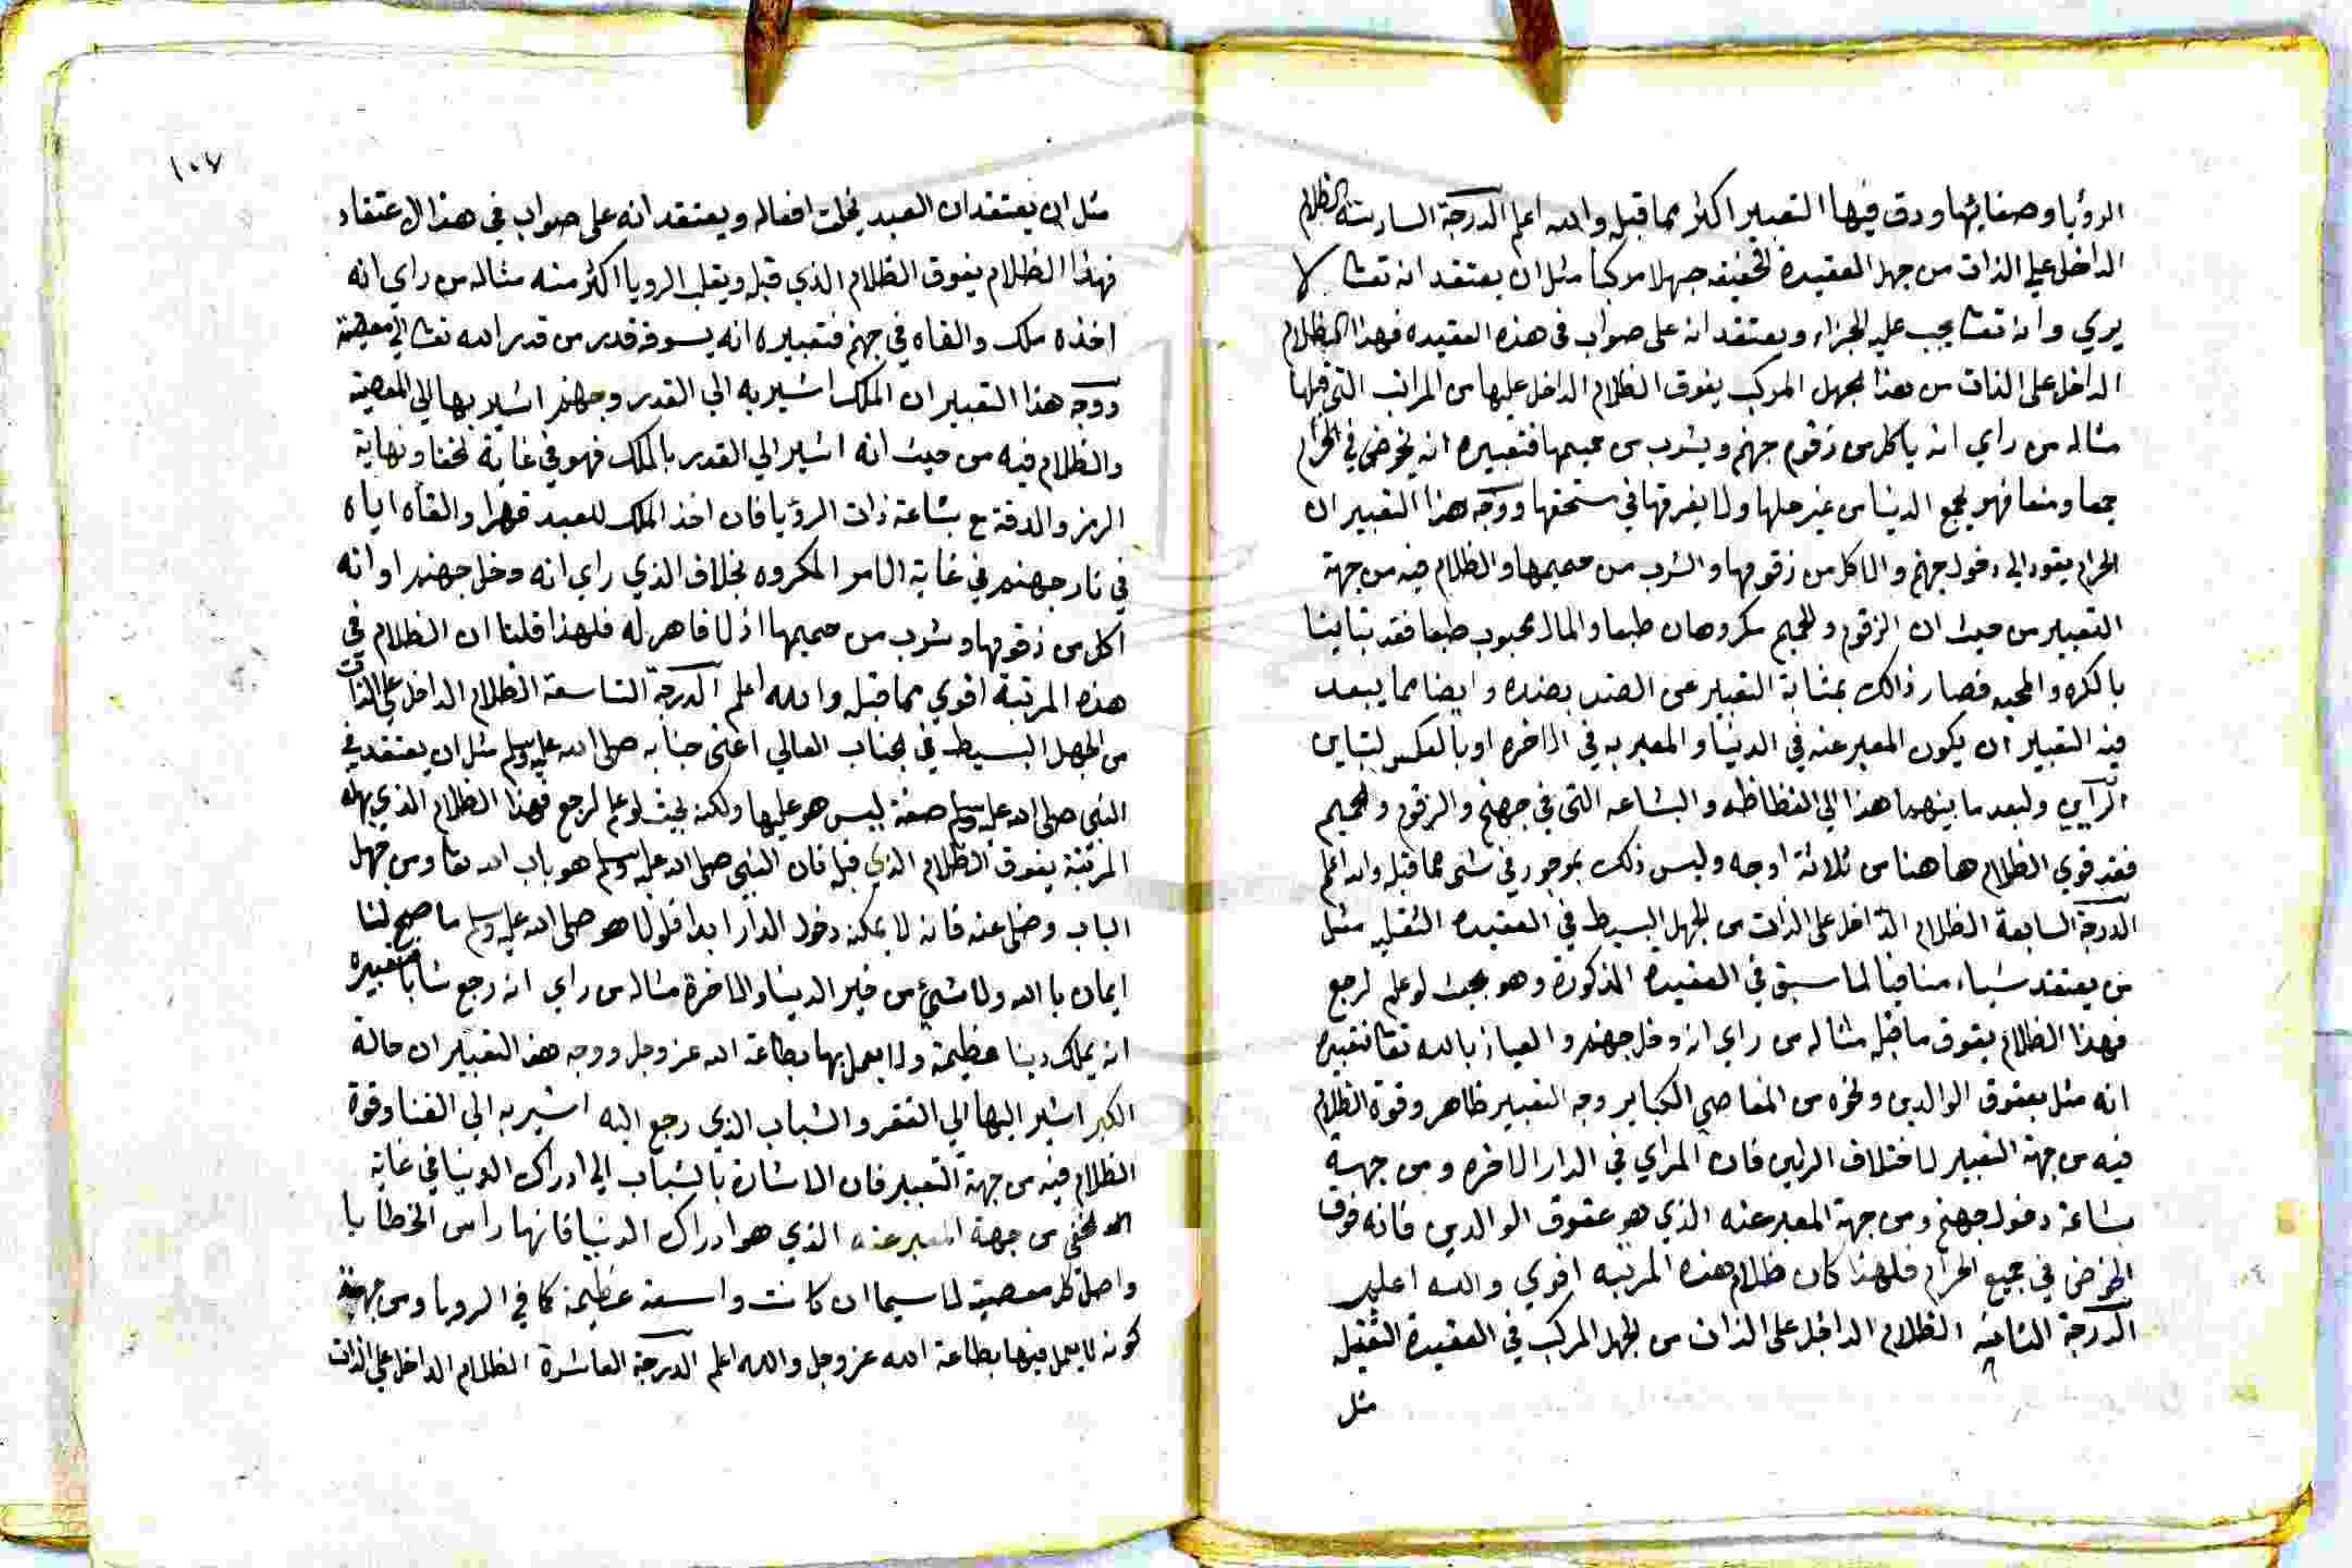 الرؤيا وصفائها ودق فيها التعبير اكثر مما قبله والله اعلم الدرجة السادسة الظلام
الداخل علي الذات من جهل العقيدة الخفيفه جهلا مركبا مثل ان يعتقد انه تعا لا
يري وانه تعا يجب عليه الجزاء ويعتقد انه على صواب في هذه العقيده فهذا الظلام
الداخل على الذات من هذا الجهل المركب يفوق الظلام الداخل عليها من المراتب التي قبلها
مثاله من راي انه ياكل من زقوم جهنم ويشرب من حميمها فتعبيره انه يخوض في الحرام
جمعا ومنعا فهو يجمع الدنيا من غير حلها ولا يفرقها في مستحقها ووجه هذا التعبير ان
الحرام يقود الي دخول جهنم والاكل من زقومها والشرب من حميمها والظلام فيه من جهة
التعبير من حيث ان الزقوم والحميم مكروهان طبعا والمال محبوب طبعا فقد تباينا
بالكره والمحبه فصار ذالك بمثابة التعبير عن الضد بضده وايضا مما يبعد
فيه التعبير ان يكون المعبر عنه في الدنيا والمعبر به في الاخره او بالعكس لتباين
الرأيي ولبعد ما بينهما هذا الي الفظاظه والبشاعه التى في جهنم والزقوم والحميم
فقد قوي الظلام ها هنا من ثلاثة اوجه وليس ذلك بموجود في شى مما قبله والله اعلم
الدرجة السابعة الظلام الداخل على الذات من الجهل البسيط في العقيده الثقيله مثل
من يعتقد شياء منافيا لما سبق في العقيدة المذكورة وهو بحيث لو علم لرجع
فهذا الظلام يفوق ما قبله مثاله من راي انه دخل جهنم والعياذ بالله تعا فتعبيره
انه مثل بعقوق الوالدين ونحوه من المعاصي الكباير وجه التعبير ظاهر وقوة الظلام
فيه من جهة التعبير لاختلاف الرلين فان المراي في الدار الاخره ومن جهة
بشاعة دخول جهنم ومن جهة المعبر عنه الذي هو عقوق الوالدين فانه فوق
الخوض في جميع الحرام فلهذا كان ظلام هذه المرتبه اقوي والله اعلم
الدرجة الثامنه الظلام الداخل على الذات من الجهل المركب في العقيدة الثقيله
مثل
١٠٧
مثل ان يعتقد ان العبد يخلق افعاله ويعتقد انه على صواب في هذا الاعتقاد
فهذا الظلام يفوق الظلام الذي قبله ويقلب الرويا اكثر منه مثاله من راي انه
اخذه ملك والقاه في جهنم فتعبيره انه يسوقه قدر من قدر الله تعا الي معصية
ووجه هذا التعبير ان الملك اشير به الي القدر وجهنم اشير بها الي المعصية
والظلام فيه من حيث انه اشير الي القدر بالملك فهو في غاية الخفا ونهاية
الرمز والدقة مع بشاعة ذات الرؤيا فان اخذ الملك للعبد قهرا والقاه اياه
في نار جهنم في غاية الامر المكروه بخلاف الذي راي انه دخل جهنم او انه
اكل من زقومها وشرب من حميمها اذ لا قاهر له فلهذا قلنا ان الظلام في
هذه المرتبة اقوي مما قبله والله اعلم الدرجة التاسعة الظلام الداخل علي الذات
من الجهل البسيط في الجناب العالي اعنى جنابه صلى الله عليه وسلم مثل ان يعتقد في
النبي صلى الله عليه وسلم صفة ليس هو عليها ولكنه بحيث لو علم لرجع فهذا الظلام الذي بهذه
المرتبة يفوق الظلام الذي قبله فان النبي صلى الله عليه وسلم هو باب الله تعا ومن جهل
الباب وضل عنه فانه لا يمكنه دخول الدار ابدا فلولا هو صلى الله عليه وسلم ما صح لنا
ايمان بالله ولا شيئ من خير الدنيا والاخرة مثاله من راي انه رجع شابا فتعبيره
انه يملك دينا عظيمة ولا يعمل بها بطاعة الله عز وجل ووجه هذا التعبير ان حالة
الكبر اشير اليها الي الفقر والشباب الذي رجع اليه اشير به الي الغنا وقوة
الظلام فيه من جهة التعبير فان الاشارة بالشباب الي ادراك الدنيا في غاية
الخفى من جهة المعبر عنه الذي هو ادراك الدنيا فانها راس الخطايا
واصل كل معصية لا سيما ان كانت واسعة عظيمة كما في الرويا ومن جهة
كونه لا يعمل فيها بطاعة الله عز وجل والله اعلم الدرجة العاشرة الظلام الداخل علي الذات